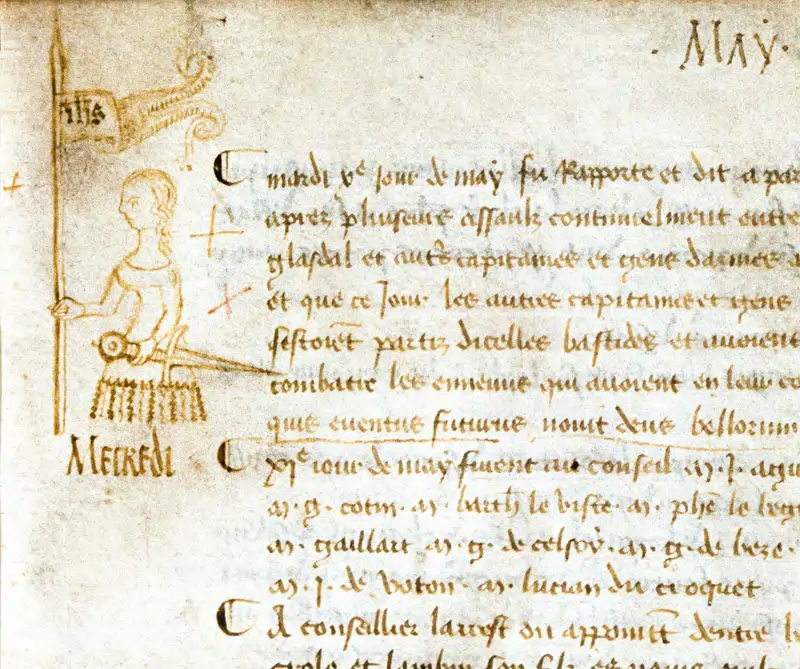 May
ihs
mardi xe jour de may fu Rapporte et dit a par
aprez pluseurs assaulz continuelment entre
glasdal et autrs capitaines et gens darmes a
et que ce Jour les autres capitaines et gens
sestoient partiz dicelles bastides et avoient
combatre les ennemis qui avoient en leur co
quis eventus futurus novit deus bellorum
Mecredi
xie jour de may furent au conseil m. J. aigu
m. g. cotin. m. barth le viste. m. phe le beg
m. gaillart m. g. de celsoy. m. g. de beze.
m. J. de voton. m. lucian du croquet
A conseillier larrest ou appoinctt dentre